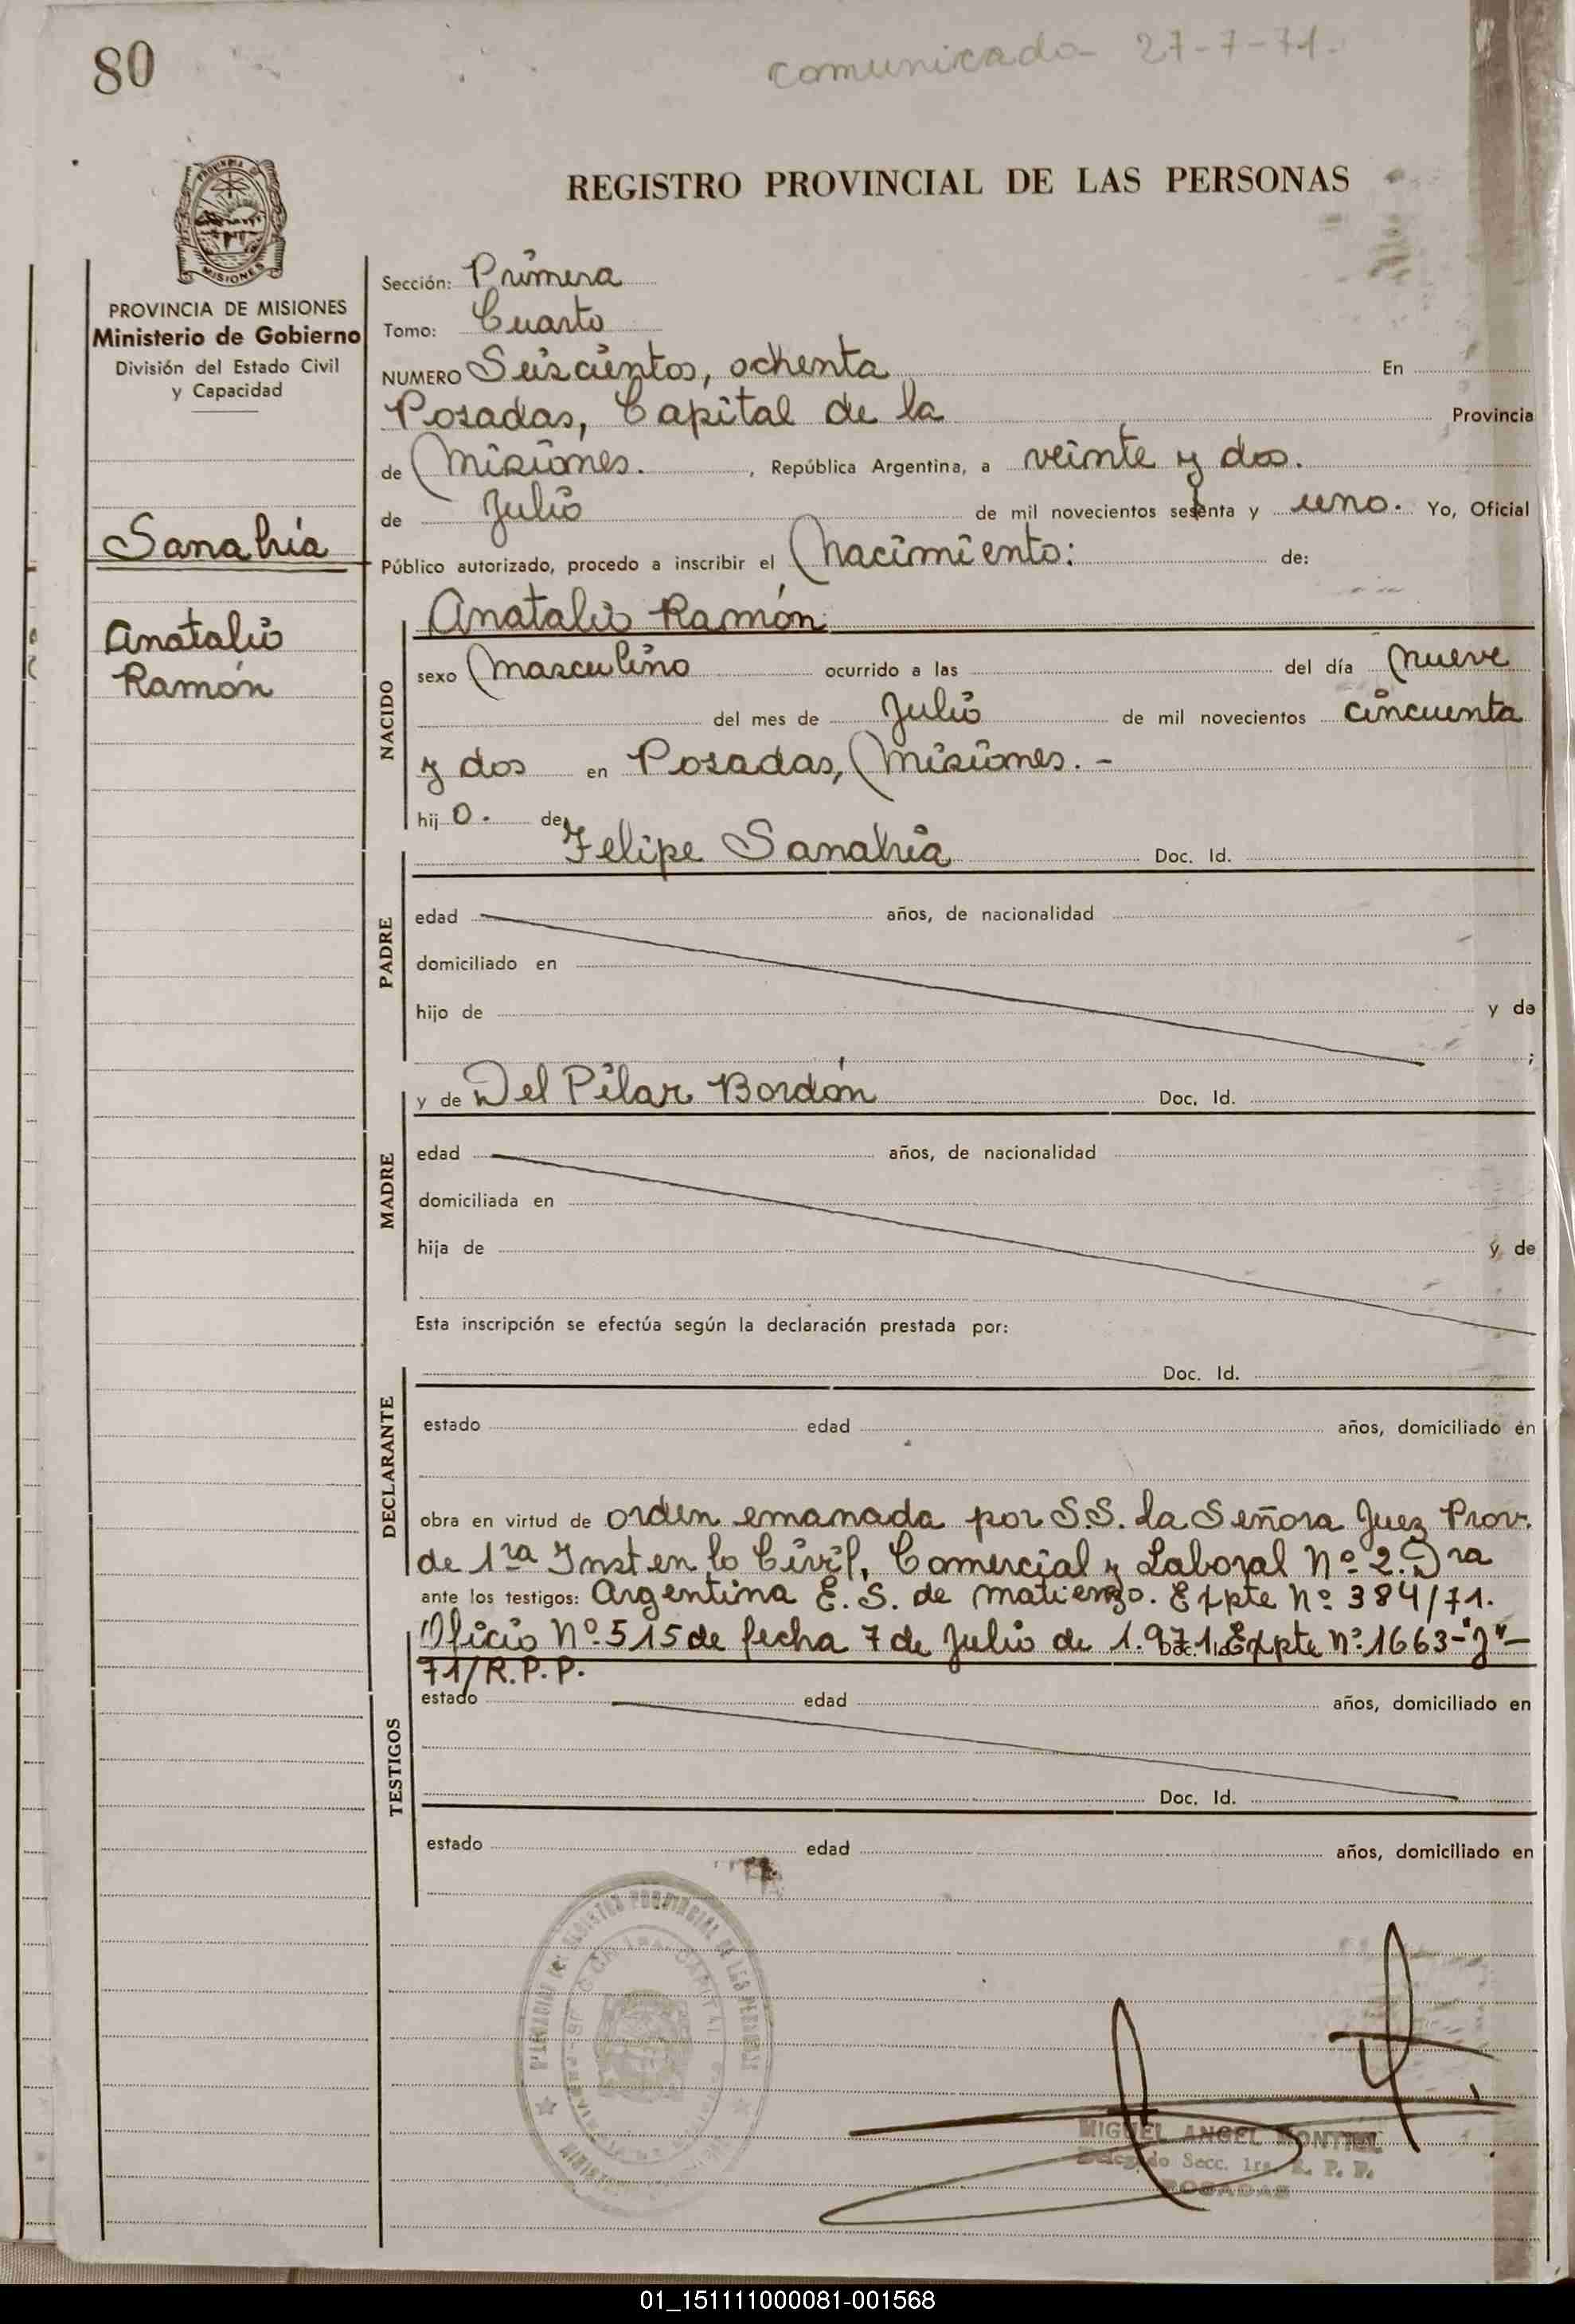 80
comunicado 27-7-71.
PROVINCIA DE
MISIONES
REGISTRO PROVINCIAL DE LAS PERSONAS
PROVINCIA DE MISIONES
Ministerio de Gobierno
División del Estado Civil
y Capacidad
Sanabria
Anatalio
Ramón
Sección: Primera
Tomo: Cuarto
NUMERO Seiscientos, ochenta En
Posadas, Capital de la Provincia
de Misiones. , República Argentina, a veinte y dos.
de Julio de mil novecientos setenta y uno. Yo, Oficial
Público autorizado, procedo a inscribir el Nacimiento: de:
NACIDO
Anatalio Ramón
sexo Masculino ocurrido a las del día Nueve
del mes de Julio de mil novecientos cincuenta
y dos en Posadas, Misiones. -
hijo. de
PADRE
Felipe Sanabria Doc. Id.
edad años, de nacionalidad
domiciliado en
hijo de y de
;
MADRE
y de Del Pilar Bordón Doc. Id.
edad años, de nacionalidad
domiciliada en
hija de y de
Esta inscripción se efectúa según la declaración prestada por:
DECLARANTE
Doc. Id.
estado edad años, domiciliado en
obra en virtud de orden emanada por S.S. la Señora Juez Prov.
de 1ra Inst en lo Civil, Comercial y Laboral Nº 2. Dra
ante los testigos: Argentina E. S. de Matienzo. Expte Nº 384/71.
Oficio Nº 515 de fecha 7 de Julio de 1.971. Expte Nº 1663-"J"-
71/R.P.P.
TESTIGOS
estado edad años, domiciliado en
Doc. Id.
estado edad años, domiciliado en
REGISTRO PROVINCIAL DE LAS PERSONAS
CAPITAL
MIGUEL ANGEL MONTIEL
Delegado Secc. 1ra. R. P. P.
POSADAS
01_151111000081-001568